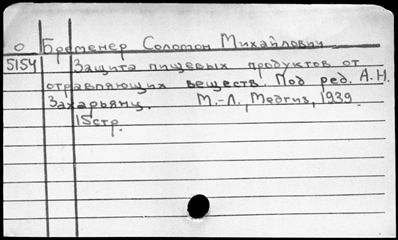 О Бременер Соломон Михайлович
5154 Защита пищевых продуктов от
отравляющих веществ. Под ред. А.Н.
Захарьянц. М.-Л., Медгиз, 1939.
15стр.